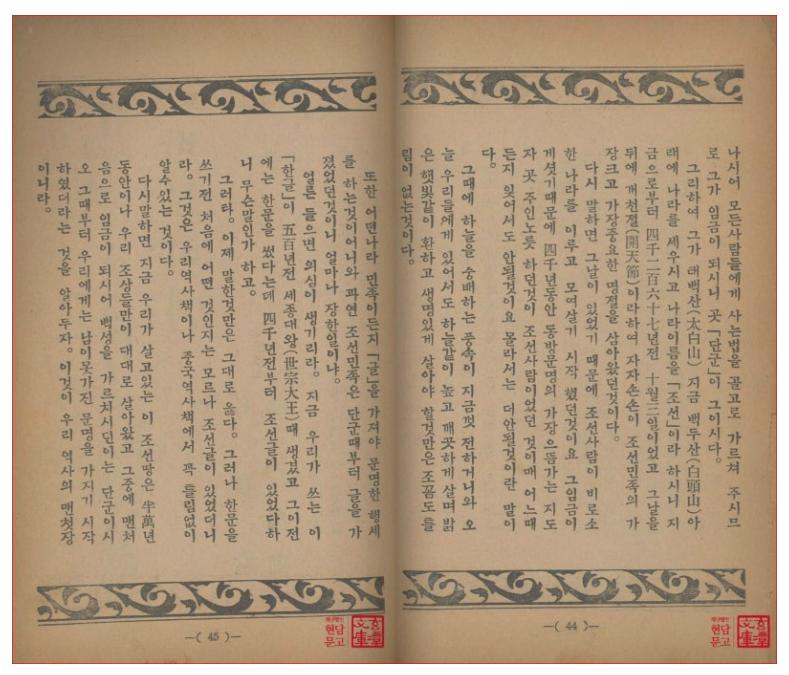 나시어 모든사람들에게 사는법을 골고로 가르쳐 주시므
로 그가 임금이 되시니 곳 「단군」이 그이시다.
그리하여 그가 태백산(太白山) 지금 백두산(白頭山)아
래에 나라를 세우시고 나라이름을 「조선」이라 하시니 지
금으로부터 四千二百六十七년전 十月三일이었고 그날을
뒤에 개천절(開天節)이라하여 자자손손이 조선민족의 가
장크고 가장중요한 명절을 삼아왔던것이다.
다시 말하면 그날이 있었기 때문에 조선사람이 비로소
한 나라를 이루고 모여살기 시작 했던것이요 그임금이
계셧기때문에 四千년동안 동방문명의 가장으뜸가는 지도
자 곳 주인노릇 하던것이 조선사람이었던 것이매 어느때
든지 잊어서도 안될것이요 몰라서는 더안될것이란 말이
다.
그때에 하늘을 숭배하는 풍속이 지금껏 전하거니와 오
늘 우리들에게 있어서도 하늘같이 높고 깨끗하게살며 밝
은 햇빛같이 환하고 생명있게 살아야 할것만은 조꼼도 틀
림이 없는것이다.
—( 44 )—
또한 어떤나라 민족이든지 「글」을 가져야 문명한 행세
를 하는것이어니와 과연 조선민족은 단군때부터 글을 가
졌었던것이니 얼마나 장한일이냐.
얼른 들으면 의심이 생기리라. 지금 우리가 쓰는 이
「한글」이 五百년전 세종대왕(世宗大王)때 생겼고 그이전
에는 한문을 썼다는데 四千년전부터 조선글이 있었다하
니 무슨말인가 하고.
그러타. 이제 말한것만은 그대로 옳다. 그러나 한문을
쓰기전 처음에 어떤 것인지는 모르나 조선글이 있었더니
라. 그것은 우리역사책이나 중국역사책에서 꼭 틀림없이
알수있는 것이다.
다시말하면 지금 우리가 살고있는 이 조선땅은 半萬년
동안이나 우리 조상들만이 대대로 살아왔고 그중에 맨처
음으로 임금이 되시어 백성을 가르치시던이는 단군이시
오 그때부터 우리에게는 남이못가진 문명을 가지기 시작
하였더라는 것을 알아두자. 이것이 우리 역사의 맨첫장
이니라.
—( 45 )—
현담
문고
현담
문고